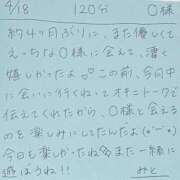 4/18 120分 O様
約4ヶ月ぶりに、また優しくて
えっちなO様に会えて、凄く
嬉しかったよ♂♡この前、今月中
に会いに行くねってオキニトークで
伝えてくれたから、O様と会える
のを楽しみにしてたんだよ(*^-^*)
今日も楽しかったね♂また一緒に
遊ぼうね!! みと